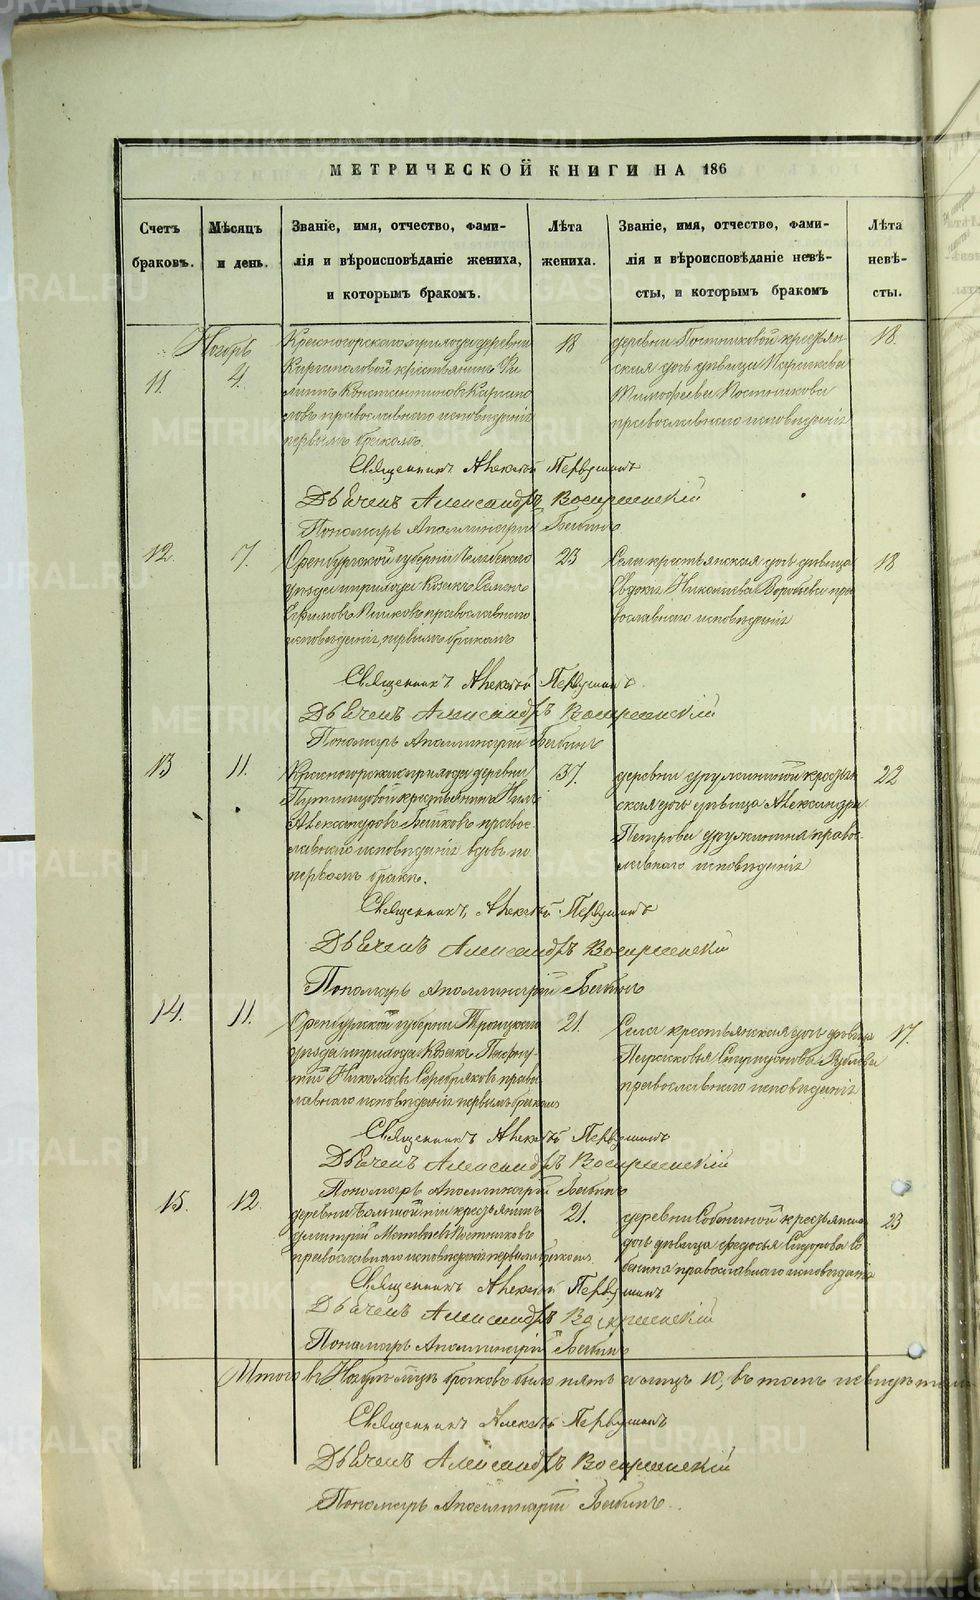 МЕТРИЧЕСКОЙ КНИГИ НА 186
Счетъ браковъ.
Мѣсяцъ и день.
Званіе, имя, отчество, фами-
лія и вѣроисповѣданіе жениха,
и которымъ бракомъ.
Лѣта жениха.
Званіе, имя, отчество, фами-
лія и вѣроисповѣданіе невѣ-
сты, и которымъ бракомъ
Лѣта невѣ-
сты.
Ноябрь
11.
4.
Красногорскаго прихода деревни
крестьянинъ
Константиновъ
православнаго исповѣданія
первымъ бракомъ.
18
деревни Постниковой крестьян-
ская дочь дѣвица
Тимофеева Постникова
православнаго исповѣданія
18.
Священникъ Алексѣй Первушинъ
Дьячекъ Александръ Воскресенскій
Пономарь Аполлинарій Бабинъ
12.
7.
Оренбургской губерніи Челябскаго
уѣзда и прихода Козакъ Семенъ
Ефимовъ православнаго
исповѣданія, первымъ бракомъ
23
Села крестьянская дочь дѣвица
Евдокія Николаева Воробьева пра-
вославнаго исповѣданія
18
Священникъ Алексѣй Первушинъ
Дьячекъ Александръ Воскресенскій
Пономарь Аполлинарій Бабинъ
13
11.
Красногорскаго прихода деревни
крестьянинъ Нилъ
Александровъ правос-
лавнаго исповѣданія вдовъ по
первомъ бракѣ.
37.
деревни Дружининой крестьян-
ская дочь дѣвица Александра
Петрова Дружинина правос-
лавнаго исповѣданія
22
Священникъ, Алексѣй Первушинъ
Дьячекъ Александръ Воскресенскій
Пономарь Аполлинарій Бабинъ
14.
11.
Оренбургской губерніи Троицкаго
уѣзда и прихода Козакъ Пафну-
тій Николаевъ Серебряковъ право-
славнаго исповѣданія первымъ бракомъ
21.
Села крестьянская дочь дѣвица
Парасковья Спиридонова
православнаго исповѣданія
17.
Священникъ Алексѣй Первушинъ
Дьячекъ Александръ Воскресенскій
Пономарь Аполлинарій Бабинъ
15.
12.
деревни крестьянинъ
Димитрій Матвѣевъ Постниковъ
православнаго исповѣданія первымъ бракомъ
21.
деревни Собениной крестьянская
дочь дѣвица Федосья Сидорова Со-
бенина православнаго исповѣданія
23
Священникъ Алексѣй Первушинъ
Дьячекъ Александръ Воскресенскій
Пономарь Аполлинарій Бабинъ
Итого въ Ноябрѣ м-цѣ браковъ было пять а лицъ 10, въ томъ
Священникъ Алексѣй Первушинъ
Дьячекъ Александръ Воскресенскій
Пономарь Аполлинарій Бабинъ
METRIKI.GASO-URAL.RU